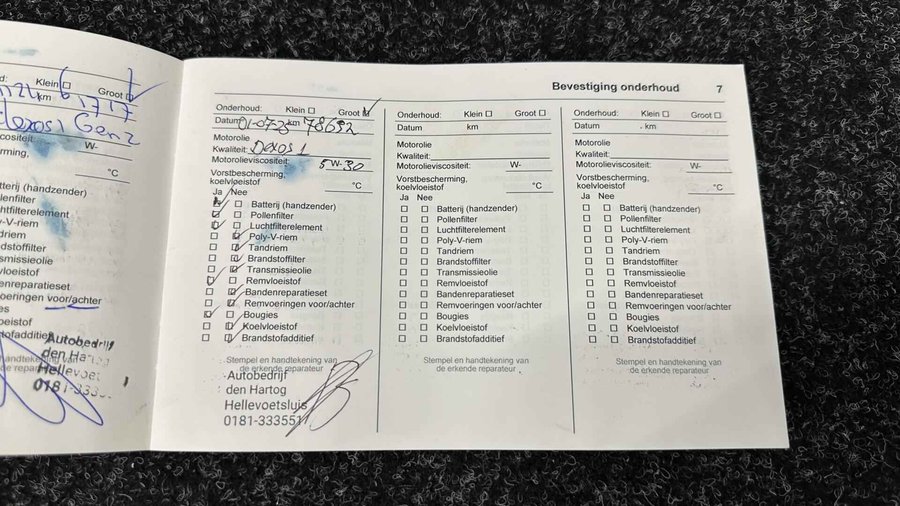 Klein
Groot
km 61717
Dexos1 Gen2
W-
°C
Batterij (handzender)
Pollenfilter
Luchtfilterelement
Poly-V-riem
voor/achter
Autobedrijf
den Hartog
Hellevoet
Bevestiging onderhoud 7
Onderhoud: Klein Groot
Datum 01-07-2 km 78652
Motorolie
Kwaliteit: Dexos 1
Motorolieviscositeit: 5 W-30
Vorstbescherming,
koelvloeistof °C
Ja Nee
Batterij (handzender)
Pollenfilter
Luchtfilterelement
Poly-V-riem
Tandriem
Brandstoffilter
Transmissieolie
Remvloeistof
Bandenreparatieset
Remvoeringen voor/achter
Bougies
Koelvloeistof
Brandstofadditief
Stempel en handtekening van
de erkende reparateur
Autobedrijf
den Hartog
Hellevoetsluis
0181-333551
Onderhoud: Klein Groot
Datum km
Motorolie
Kwaliteit:
Motorolieviscositeit: W-
Vorstbescherming,
koelvloeistof °C
Ja Nee
Batterij (handzender)
Pollenfilter
Luchtfilterelement
Poly-V-riem
Tandriem
Brandstoffilter
Transmissieolie
Remvloeistof
Bandenreparatieset
Remvoeringen voor/achter
Bougies
Koelvloeistof
Brandstofadditief
Stempel en handtekening van
de erkende reparateur
Onderhoud: Klein Groot
Datum km
Motorolie
Kwaliteit:
Motorolieviscositeit: W-
Vorstbescherming,
koelvloeistof °C
Ja Nee
Batterij (handzender)
Pollenfilter
Luchtfilterelement
Poly-V-riem
Tandriem
Brandstoffilter
Transmissieolie
Remvloeistof
Bandenreparatieset
Remvoeringen voor/achter
Bougies
Koelvloeistof
Brandstofadditief
Stempel en handtekening van
de erkende reparateur